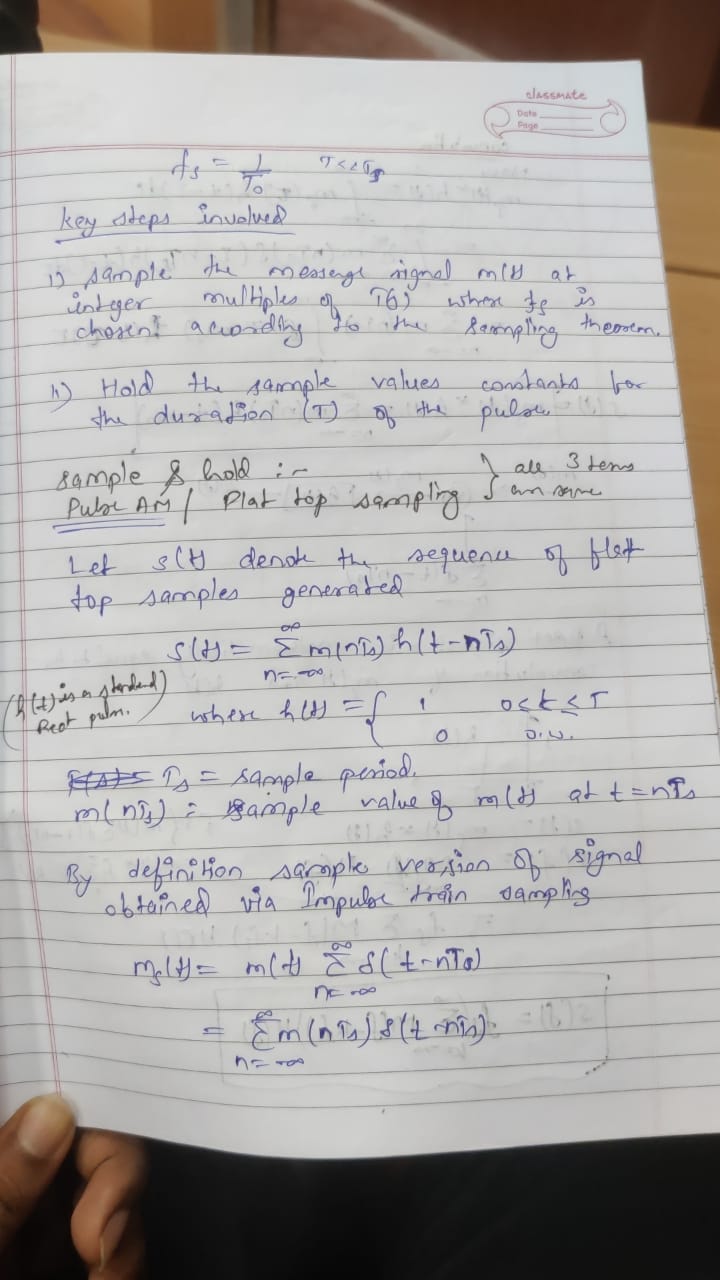 classmate
Date
Page
fs = 1/To   T<<Ts
key steps involved
i) sample the message signal m(t) at
integer multiples of T(s) where fs is
chosen according to the sampling theorem.
ii) Hold the sample values constants for
the duration (T) of the pulse
sample & hold :-
Pulse AM / Flat top sampling } all 3 terms are same
Let s(t) denote the sequence of flat
top samples generated
s(t) = ∞ Σ n=-∞ m(nTs) h(t-nTs)
(h(t) is a standard Rect pulse.)
where h(t) = { 1   0<t<T
0   o.w.
Ts = sample period.
m(nTs) = sample value of m(t) at t=nTs
By definition sample version of signal
obtained via Impulse train sampling
ms(t) = m(t) ∞ Σ n=-∞ δ(t-nTs)
= ∞ Σ n=-∞ m(nTs) δ(t-nTs)